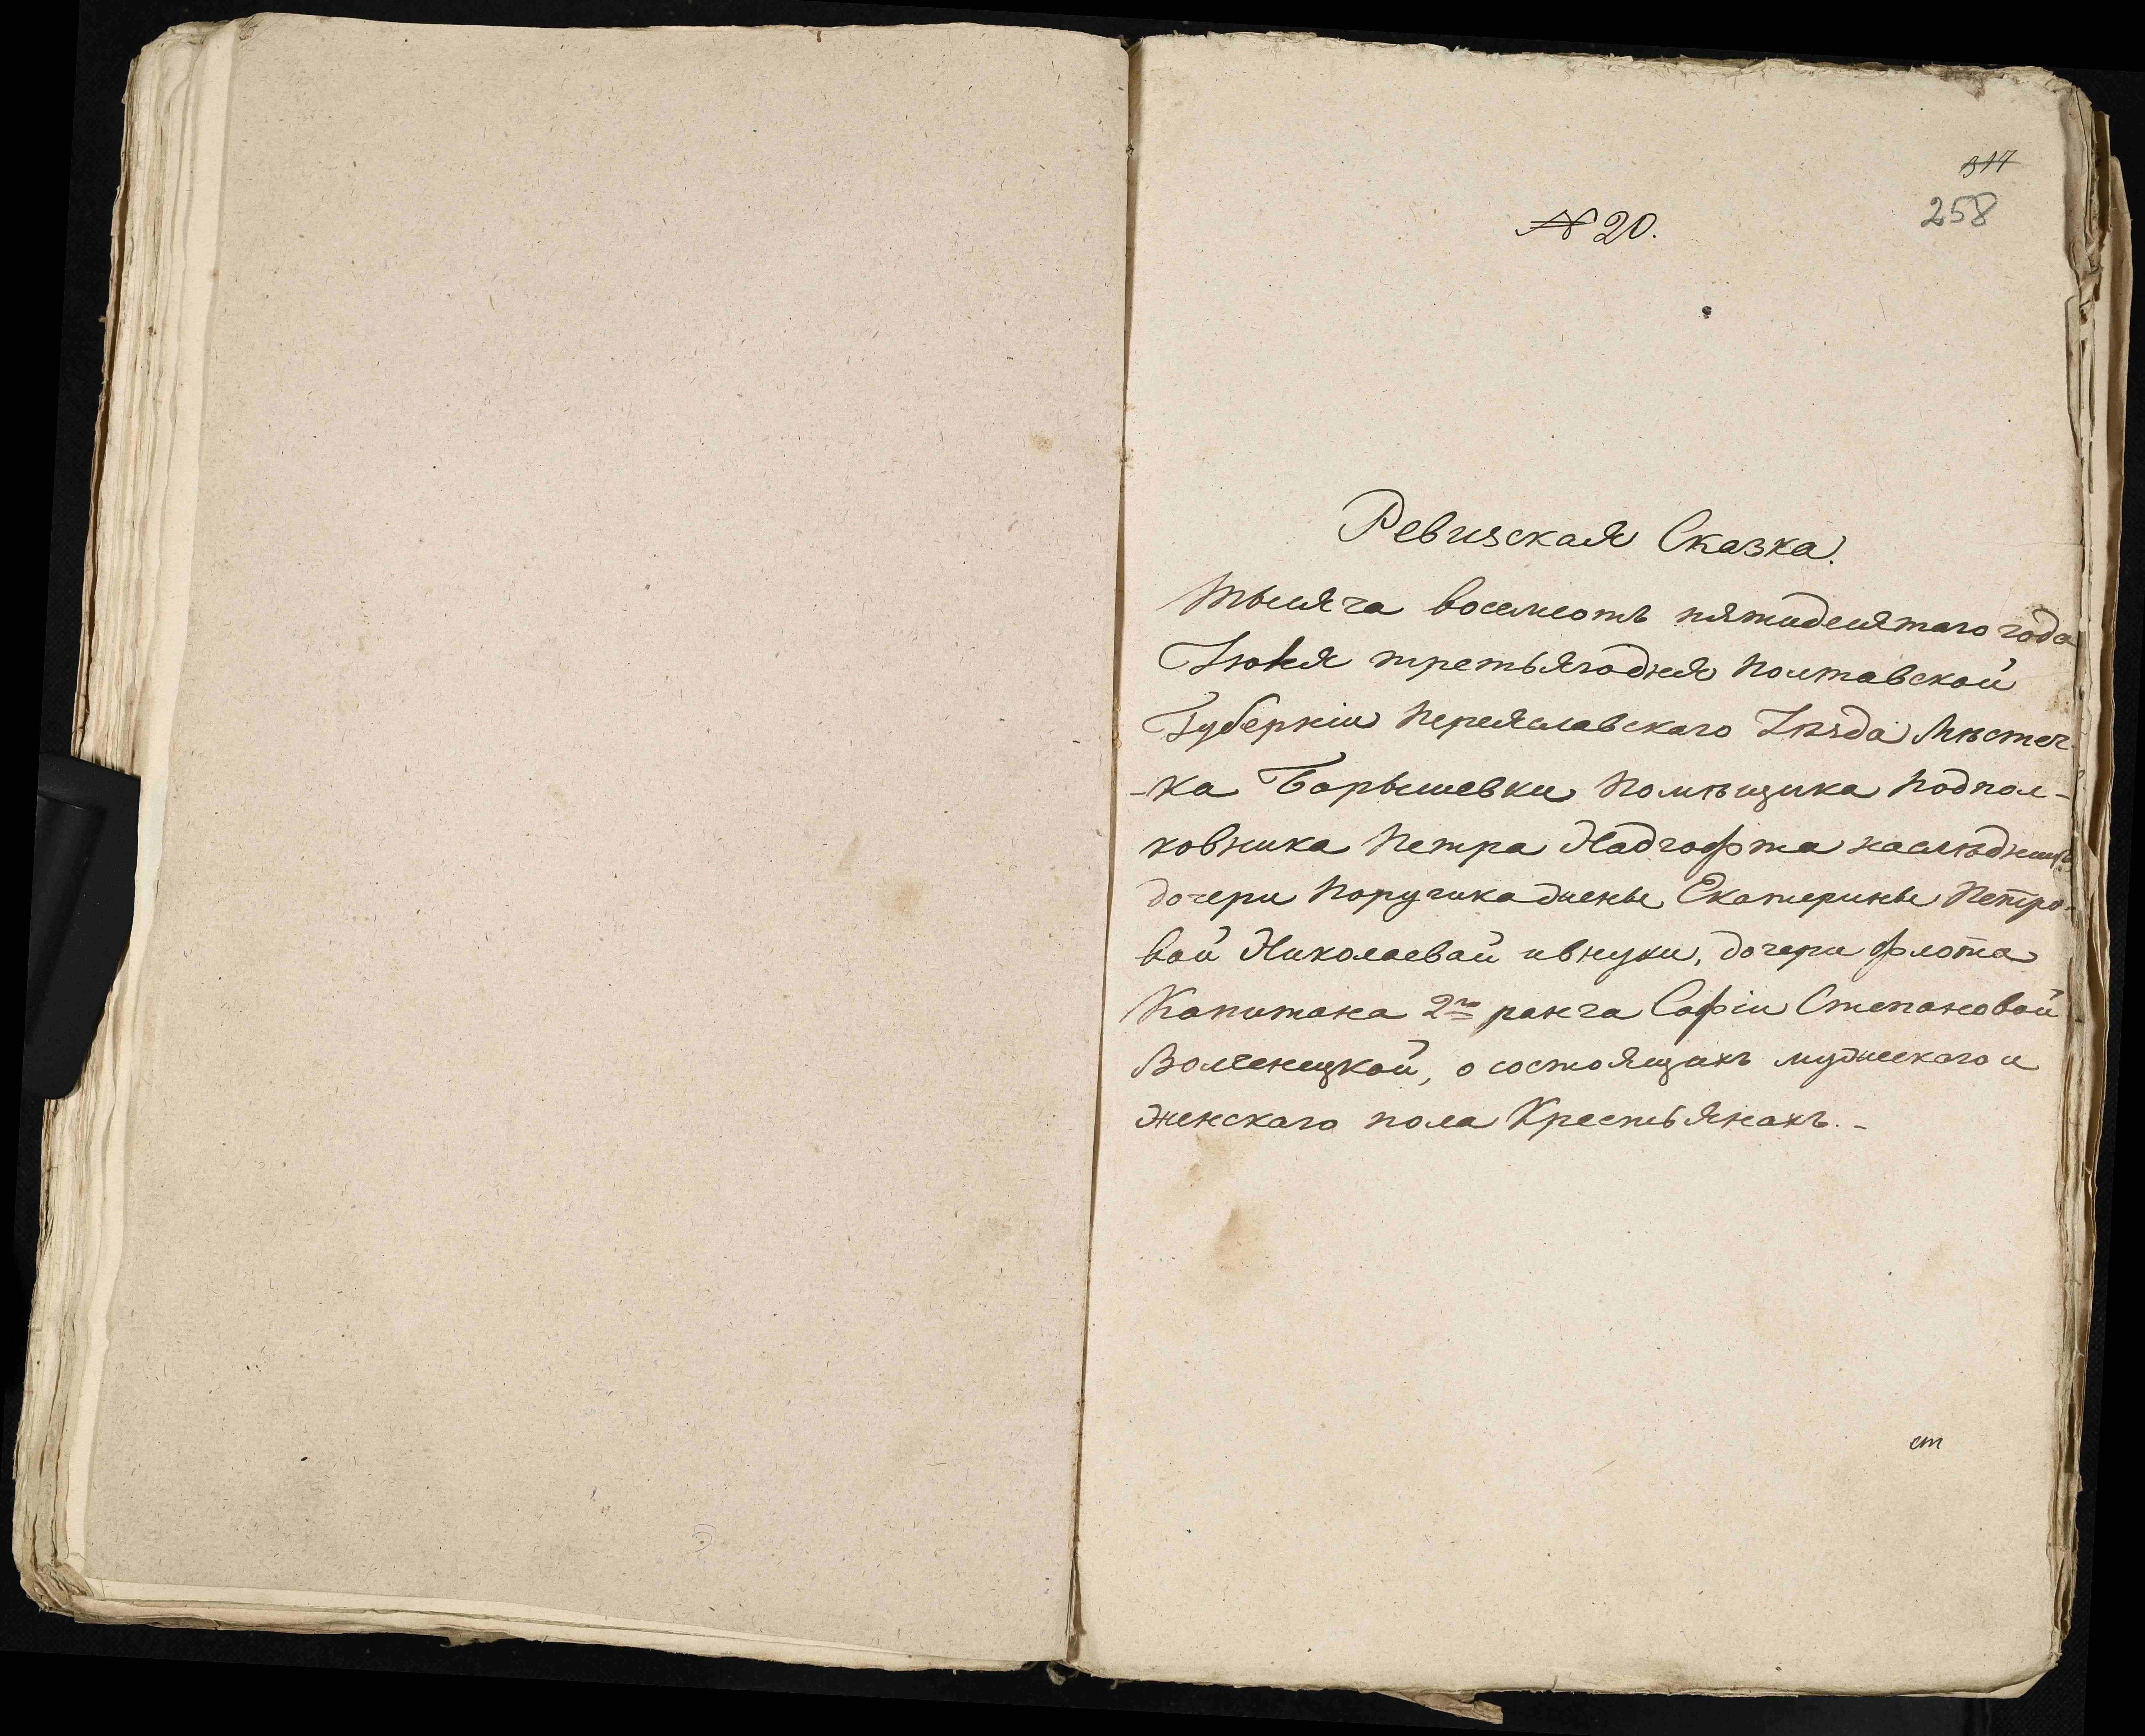 317
258
№ 20.
Ревизская Сказка.
Тысяча восемсотъ пятидесятаго года
Іюня третьягодня Полтавской
Губерніи Переяславскаго Уѣзда Мѣстеч-
-ка Барышевки Помѣщика Подпол-
ковника Петра
дочери Поручикадженье Екатерины Петро-
вой Николаевой ивнуки, дочери флота
Капитана 2го ранга Софіи Степановой
о состоящихъ мужескаго и
женскаго пола Крестьянахъ.-
ст